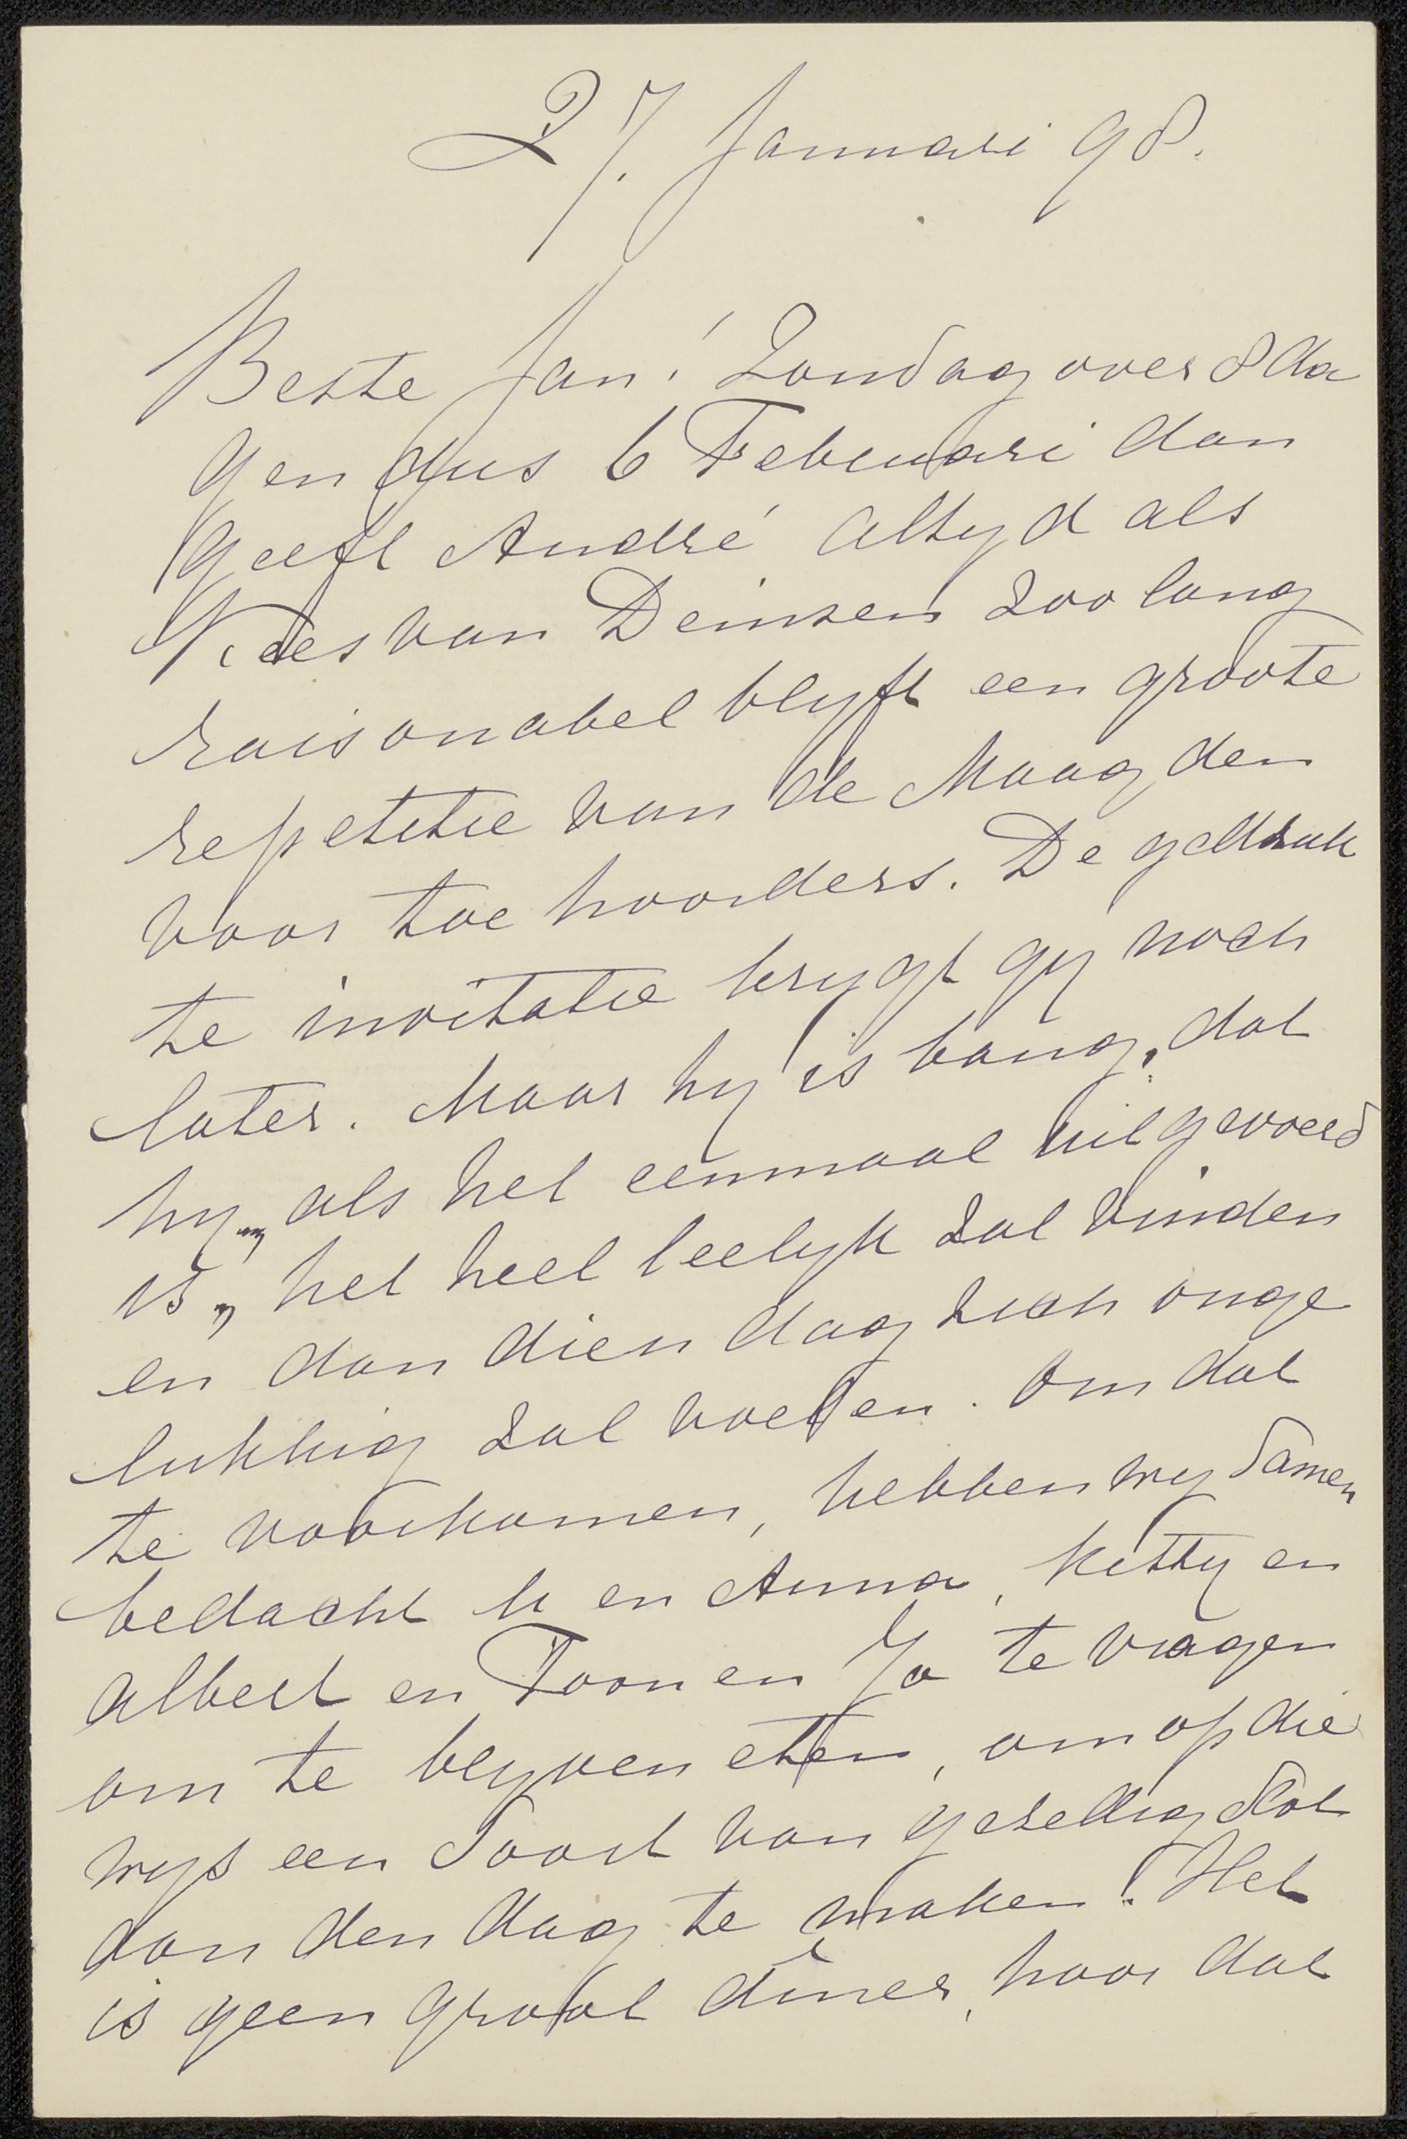 27. Januari 98.
Beste Jan! Zondag over 8 da
gen dus 6 Februari dan
geeft André altyd als
Kees van Deinsen zoo lang
raisonabel blyft een groote
repetitie van de Maagden
voor toe hoorders. De gedruk
te invitatie krygt gy noch
later. Maar hy is bang, dat
hy, als het eenmaal uitgevoerd
is, het heel leelyk zal vinden
en dan dien dag zich onge
lukkig zal voelen. Om dat
te voorkomen, hebben wy samen
bedacht U en Anna, Kitty en
Albert en Toon en Jo te vragen
om te blyven eten, om op die
wys een soort van gezellig slot
aan den dag te maken! Het
is geen groot diner, hoor dat